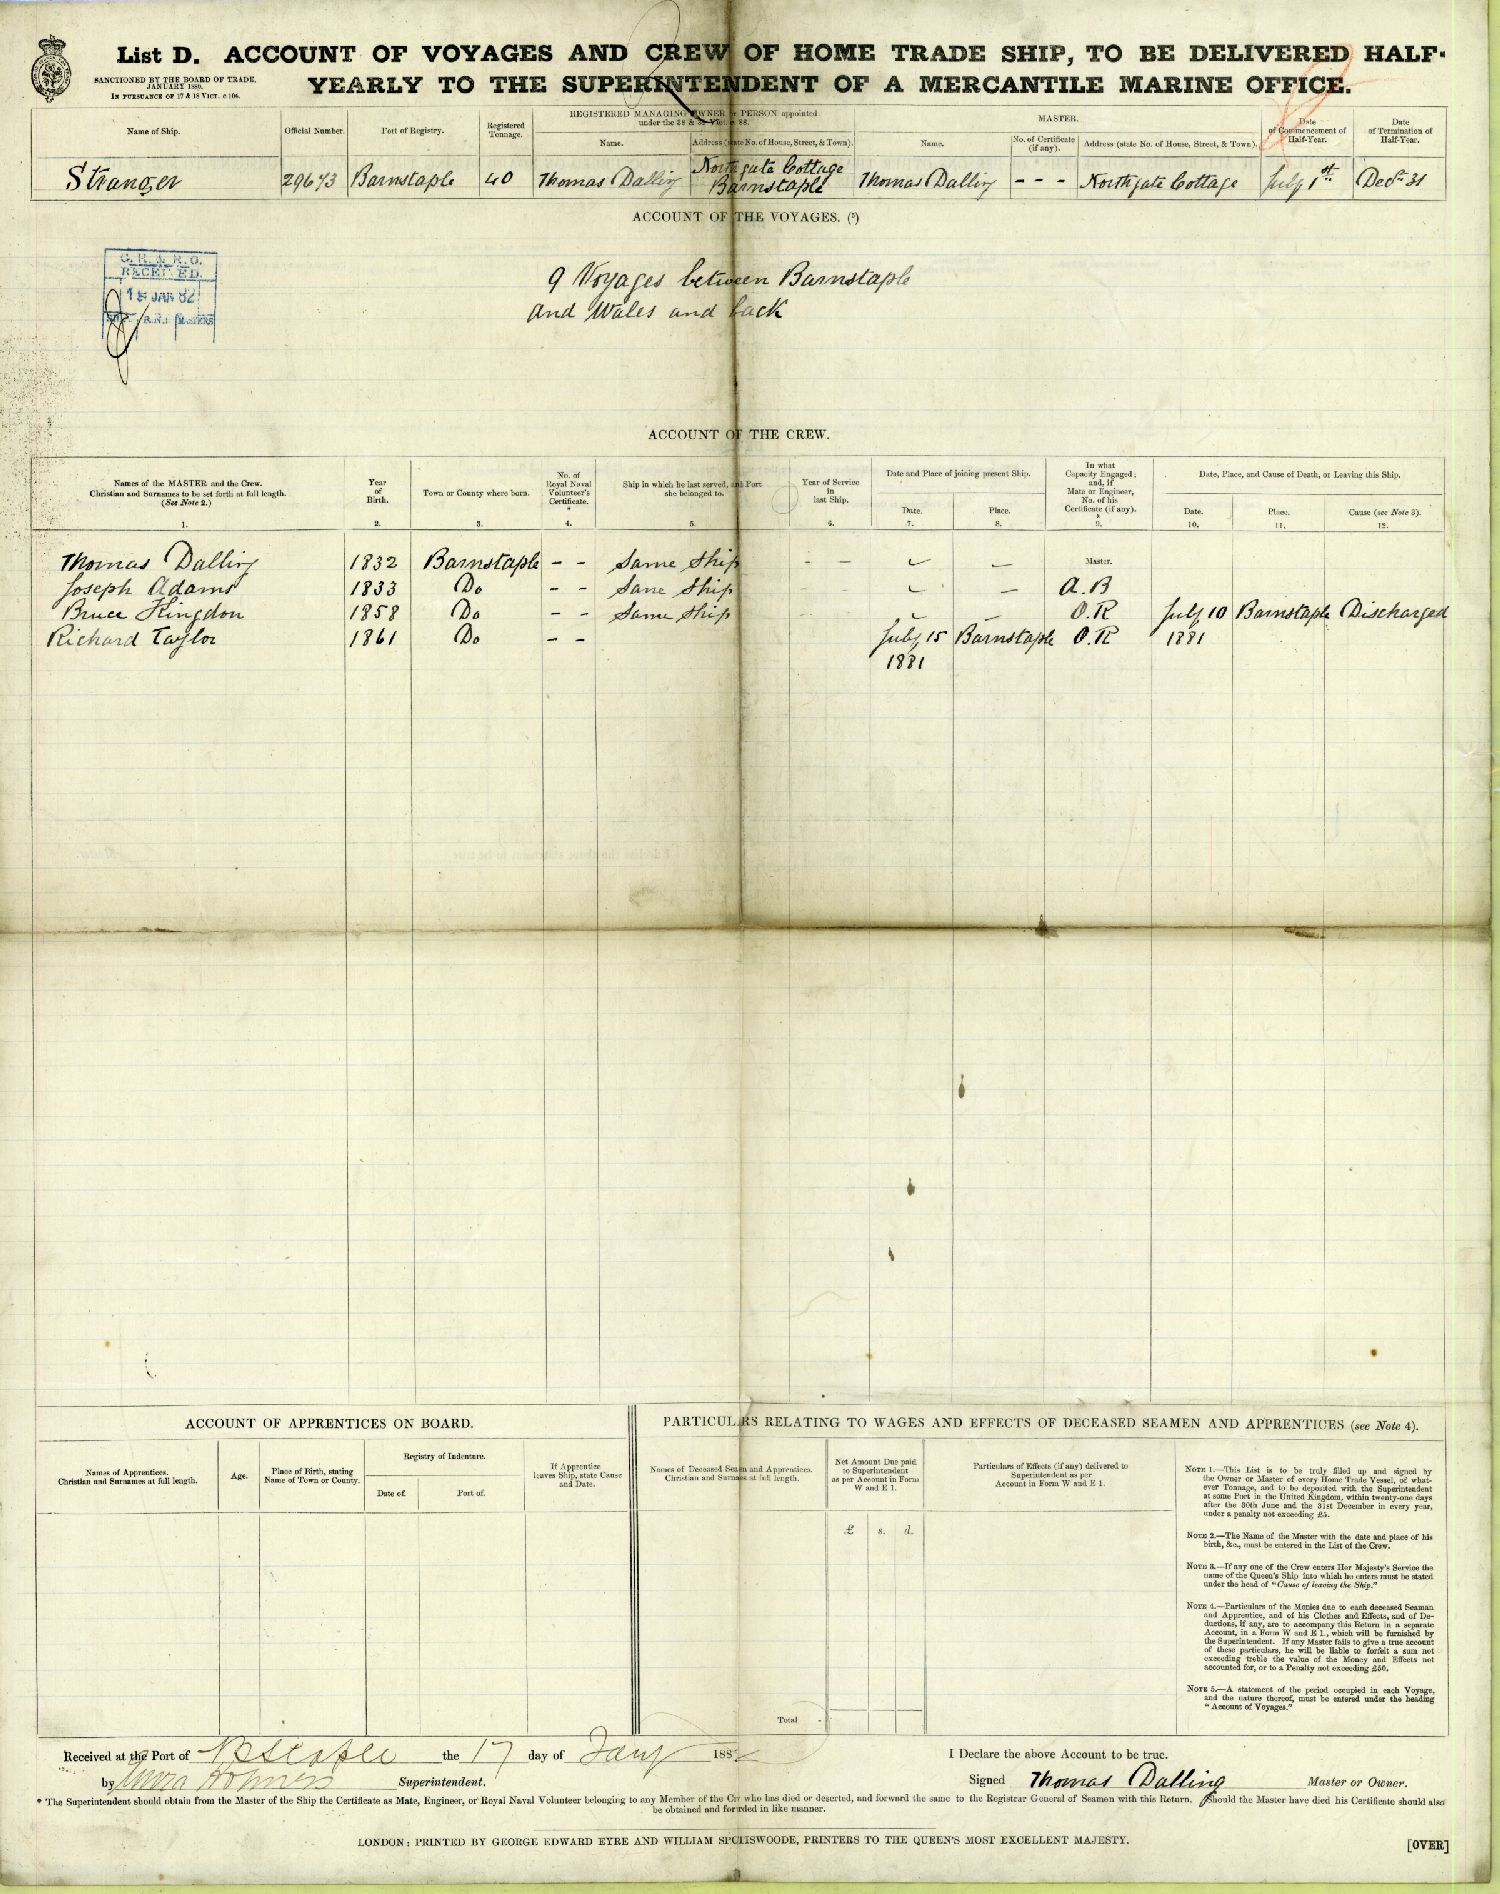 List D. ACCOUNT OF VOYAGES AND CREW OF HOME TRADE SHIP, TO BE DELIVERED HALF-
YEARLY TO THE SUPERINTENDENT OF A MERCANTILE MARINE OFFICE.
SANCTIONED BY THE BOARD OF TRADE,
JANUARY 1880.
IN PURSUANCE OF 17 & 18 VICT. c 104.
Name of Ship.
Official Number.
Port of Registry.
Registered
Tonnage.
REGISTERED MANAGING OWNER or PERSON appointed
under the 38 & 39 Vict. c. 88.
Name.
Address (state No. of House, Street, & Town).
MASTER.
Name.
No. of Certificate
(if any).
Address (state No. of House, Street, & Town).
Date
of Commencement of
Half-Year.
Date
of Termination of
Half-Year.
Stranger
Barnstaple
40
Thomas Dalling
Northgate Cottage
Barnstaple
Thomas Dalling
- - -
Northgate Cottage
July 1st
Decr 31
ACCOUNT OF THE VOYAGES. (5)
RECEIVED.
JAN 82
9 Voyages between Barnstaple
and Wales and back
ACCOUNT OF THE CREW.
Names of the MASTER and the Crew.
Christian and Surnames to be set forth at full length.
(See Note 2.)
1.
Year
of
Birth.
2.
Town or County where born.
3.
No. of
Royal Naval
Volunteer's
Certificate.
*
4.
Ship in which he last served, and Port
she belonged to.
5.
Year of Service
in
last Ship.
6.
Date and Place of joining present Ship.
Date.
7.
Place.
8.
In what
Capacity Engaged;
and, if
Mate or Engineer,
No. of his
Certificate (if any).
*
9.
Date, Place, and Cause of Death, or Leaving this Ship.
Date.
10.
Place.
11.
Cause (see Note 3).
12.
Thomas Dalling 1832 Barnstaple - - Same Ship - - Master.
Joseph Adams 1833 Do - - Same Ship A.B
Bruce Kingdon 1858 Do - - Same Ship O.R July 10 Barnstaple Discharged
Richard Taylor 1861 Do - - July 15 Barnstaple O.R 1881
1881
ACCOUNT OF APPRENTICES ON BOARD.
Names of Apprentices.
Christian and Surnames at full length.
Age.
Place of Birth, stating
Name of Town or County.
Registry of Indenture.
Date of.
Port of.
If Apprentice
leaves Ship, state Cause
and Date.
PARTICULARS RELATING TO WAGES AND EFFECTS OF DECEASED SEAMEN AND APPRENTICES (see Note 4).
Names of Deceased Seamen and Apprentices.
Christian and Surnames at full length.
Net Amount Due paid
to Superintendent
as per Account in Form
W and E 1.
£ s. d.
Particulars of Effects (if any) delivered to
Superintendent as per
Account in Form W and E 1.
Total
NOTE 1.—This List is to be truly filled up and signed by
the Owner or Master of every Home Trade Vessel, of what-
ever Tonnage, and to be deposited with the Superintendent
at some Port in the United Kingdom, within twenty-one days
after the 30th June and the 31st December in every year,
under a penalty not exceeding £5.
NOTE 2.—The Name of the Master with the date and place of his
birth, &c., must be entered in the List of the Crew.
NOTE 3.—If any one of the Crew enters Her Majesty's Service the
name of the Queen's Ship into which he enters must be stated
under the head of "Cause of leaving the Ship."
NOTE 4.—Particulars of the Monies due to each deceased Seaman
and Apprentice, and of his Clothes and Effects, and of De-
ductions, if any, are to accompany this Return in a separate
Account, in a Form W and E 1., which will be furnished by
the Superintendent. If any Master fails to give a true account
of these particulars, he will be liable to forfeit a sum not
exceeding treble the value of the Money and Effects not
accounted for, or to a Penalty not exceeding £50.
NOTE 5.—A statement of the period occupied in each Voyage,
and the nature thereof, must be entered under the heading
"Account of Voyages."
Received at the Port of the 17 day of Jany 1882
by Superintendent.
I Declare the above Account to be true.
Signed Thomas Dalling Master or Owner.
* The Superintendent should obtain from the Master of the Ship the Certificate as Mate, Engineer, or Royal Naval Volunteer belonging to any Member of the Crew who has died or deserted, and forward the same to the Registrar General of Seamen with this Return. Should the Master have died his Certificate should also
be obtained and forwarded in like manner.
LONDON: PRINTED BY GEORGE EDWARD EYRE AND WILLIAM SPOTTISWOODE, PRINTERS TO THE QUEEN'S MOST EXCELLENT MAJESTY.
[OVER]